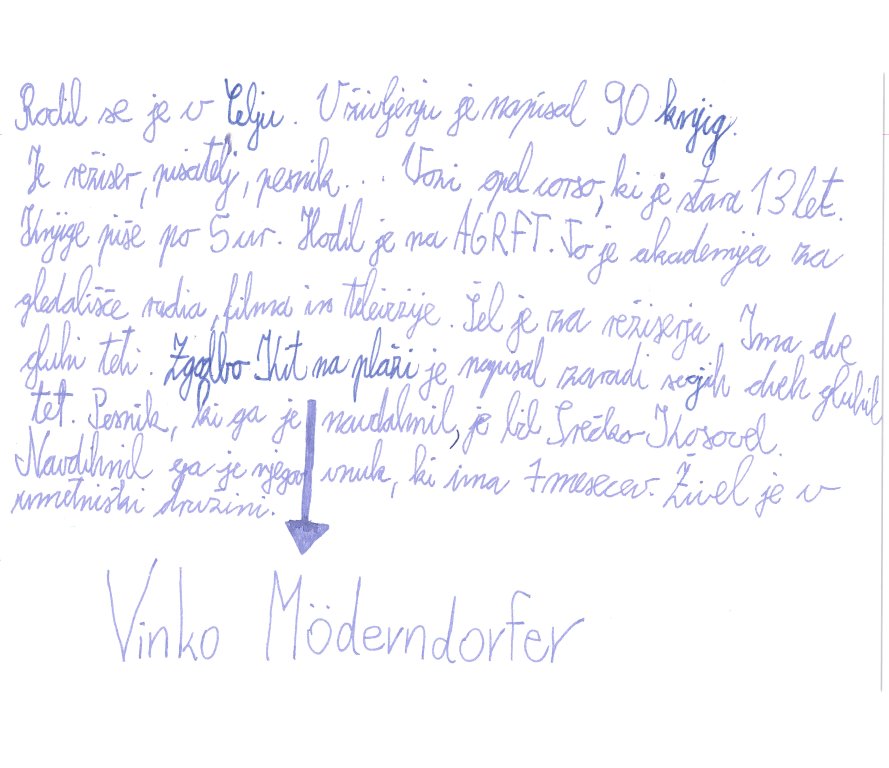 Rodil se je v Celju. V življenju je napisal 90 knjig.
Je režiser, pisatelj, pesnik... Vozi opel corso, ki je stara 13 let.
Knjige piše po 5 ur. Hodil je na AGRFT. To je akademija za
gledališče radia, filma in televizije. Šel je za režiserja. Ima dve
gluhi teti. Zgodbo Kit na plaži je napisal zaradi svojih dveh gluhih
tet. Pesnik, ki ga je navdahnil, je bil Srečko Kosovel.
Navdihnil ga je njegov vnuk, ki ima 7 mesecev. Živel je v
umetniški družini.
Vinko Möderndorfer